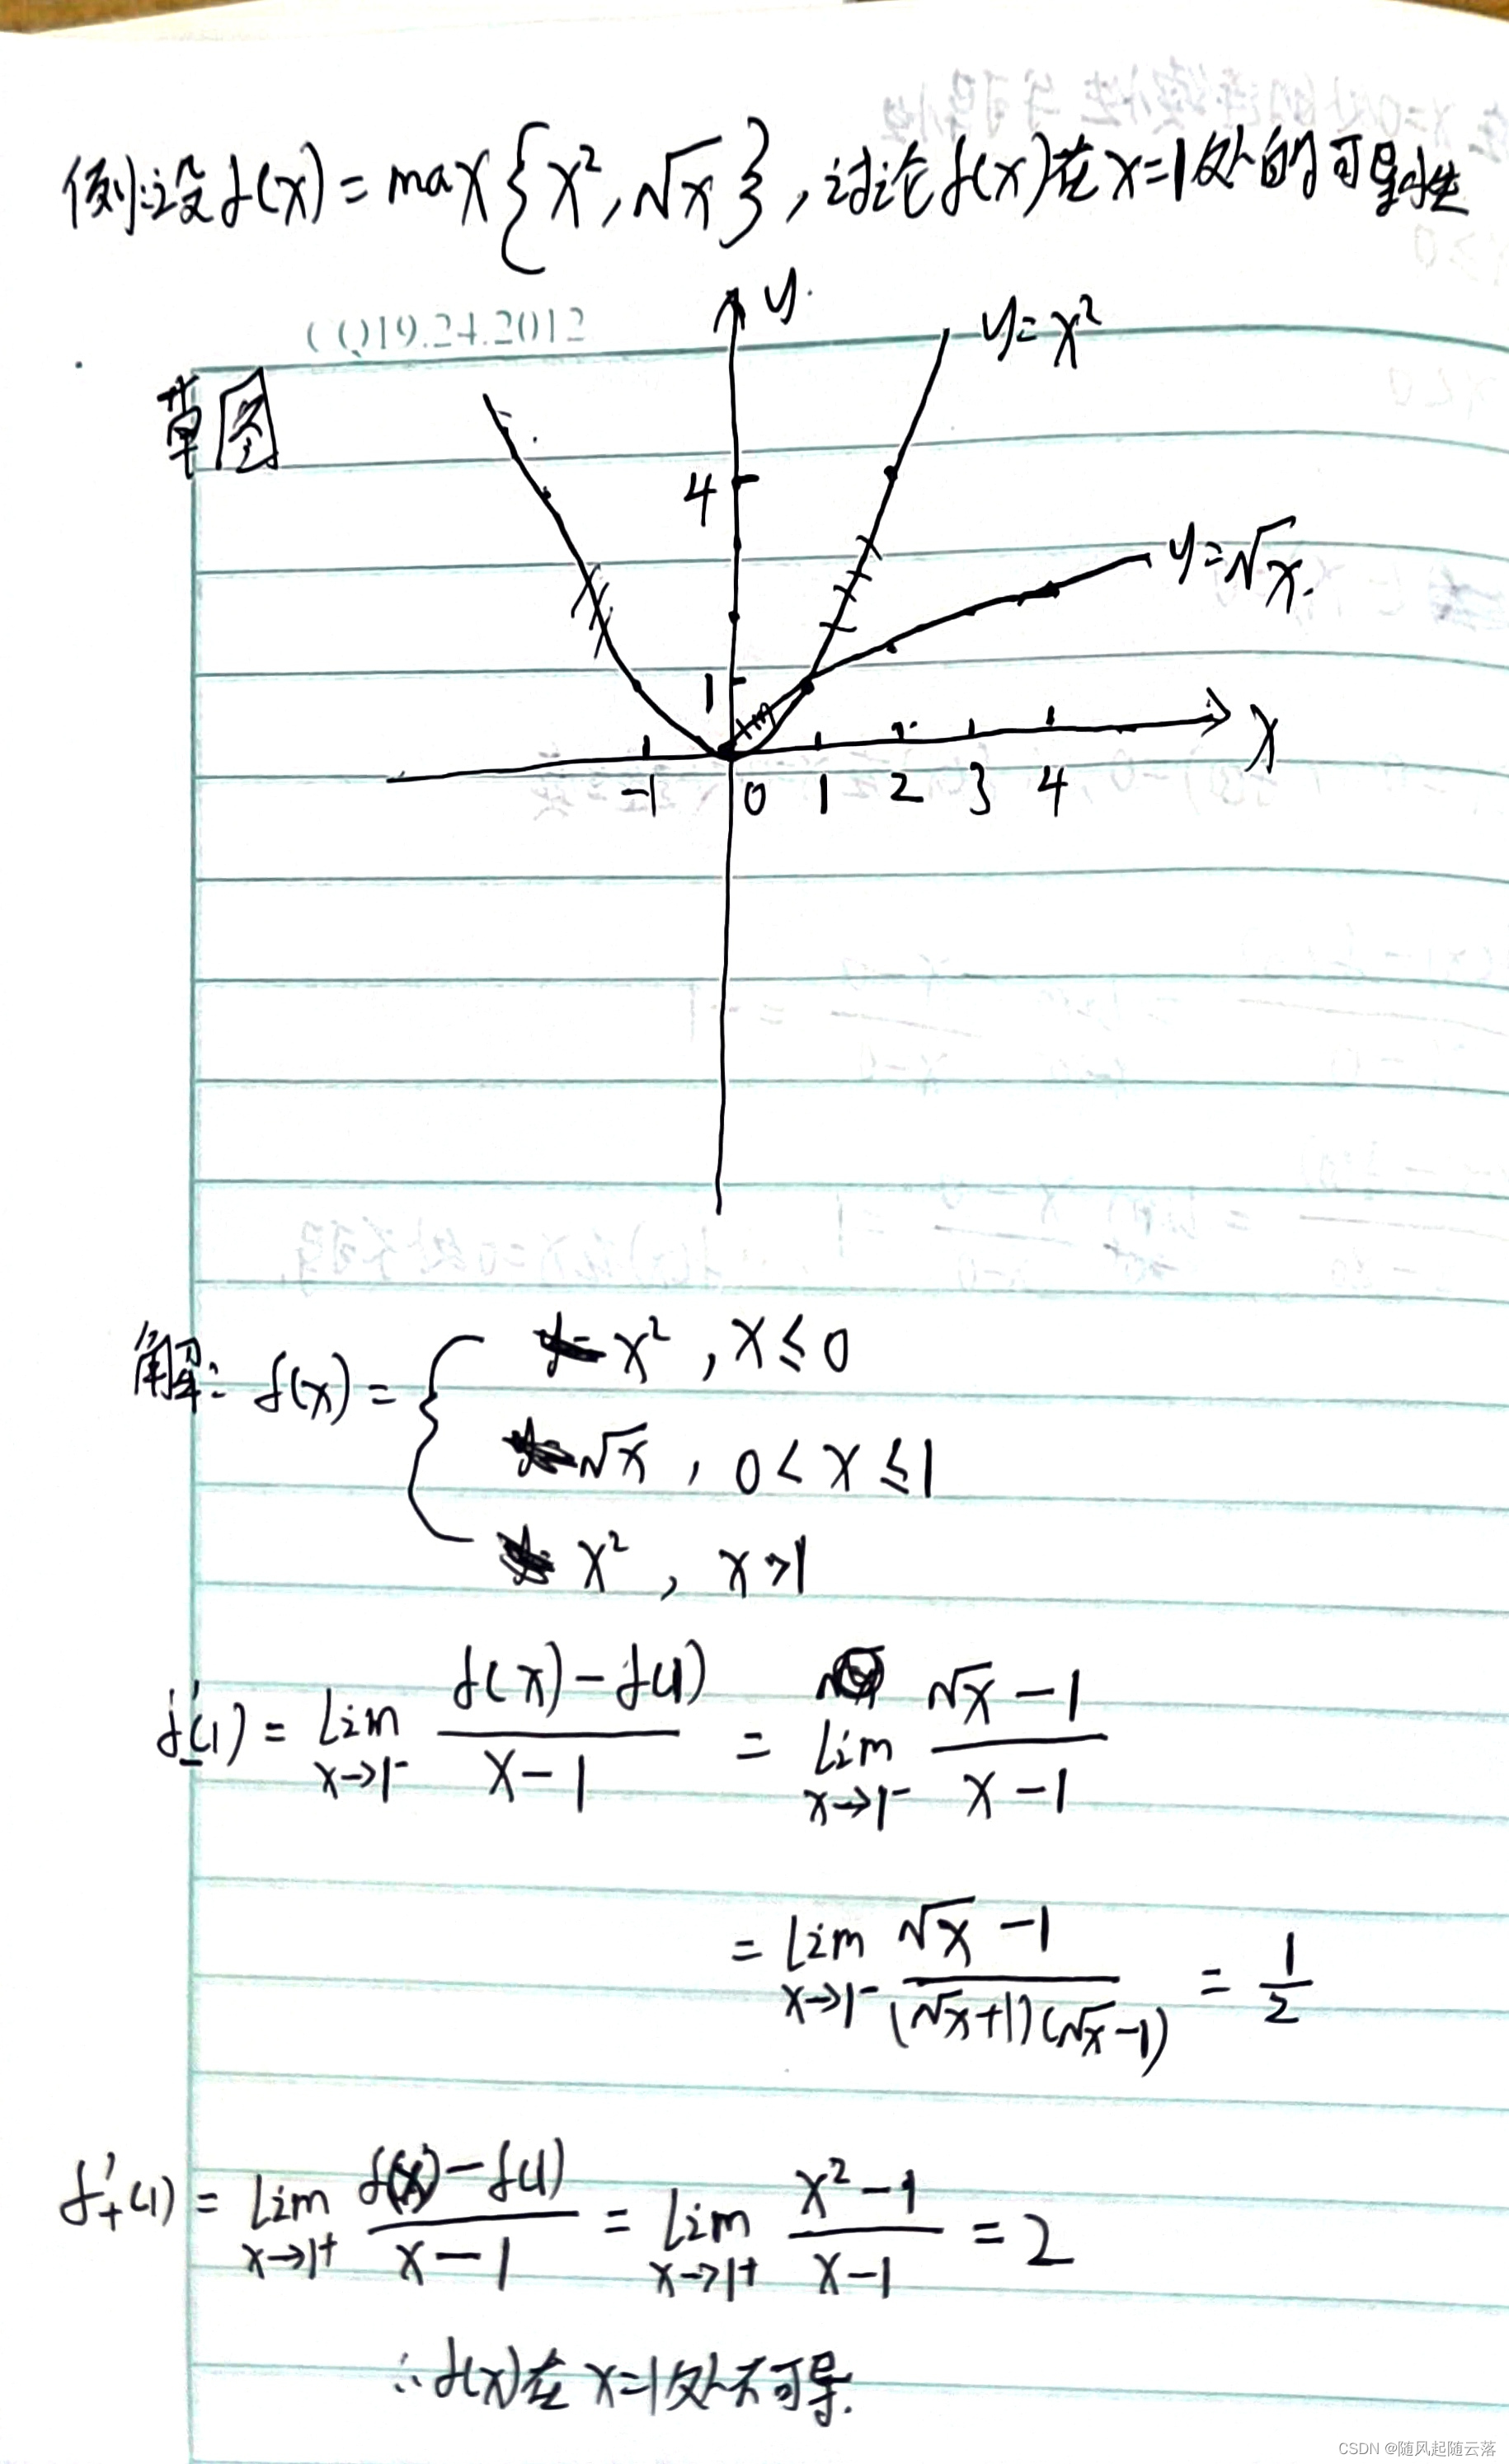 例:设f(x)=max{x²,√x},讨论f(x)在x=1处的可导性
(Q19.24.2012
y
y=x²
草图
4
y=√x.
1
x
-1 0 1 2 3 4
解: f(x)={ x², x≤0
√x, 0<x≤1
x², x>1
f'₋(1) = lim x→1⁻ (f(x)-f(1))/(x-1) = lim x→1⁻ (√x-1)/(x-1)
= lim x→1⁻ (√x-1)/((√x+1)(√x-1)) = 1/2
f'₊(1) = lim x→1⁺ (f(x)-f(1))/(x-1) = lim x→1⁺ (x²-1)/(x-1) = 2
∴f(x)在x=1处不可导.
CSDN @随风起随云落